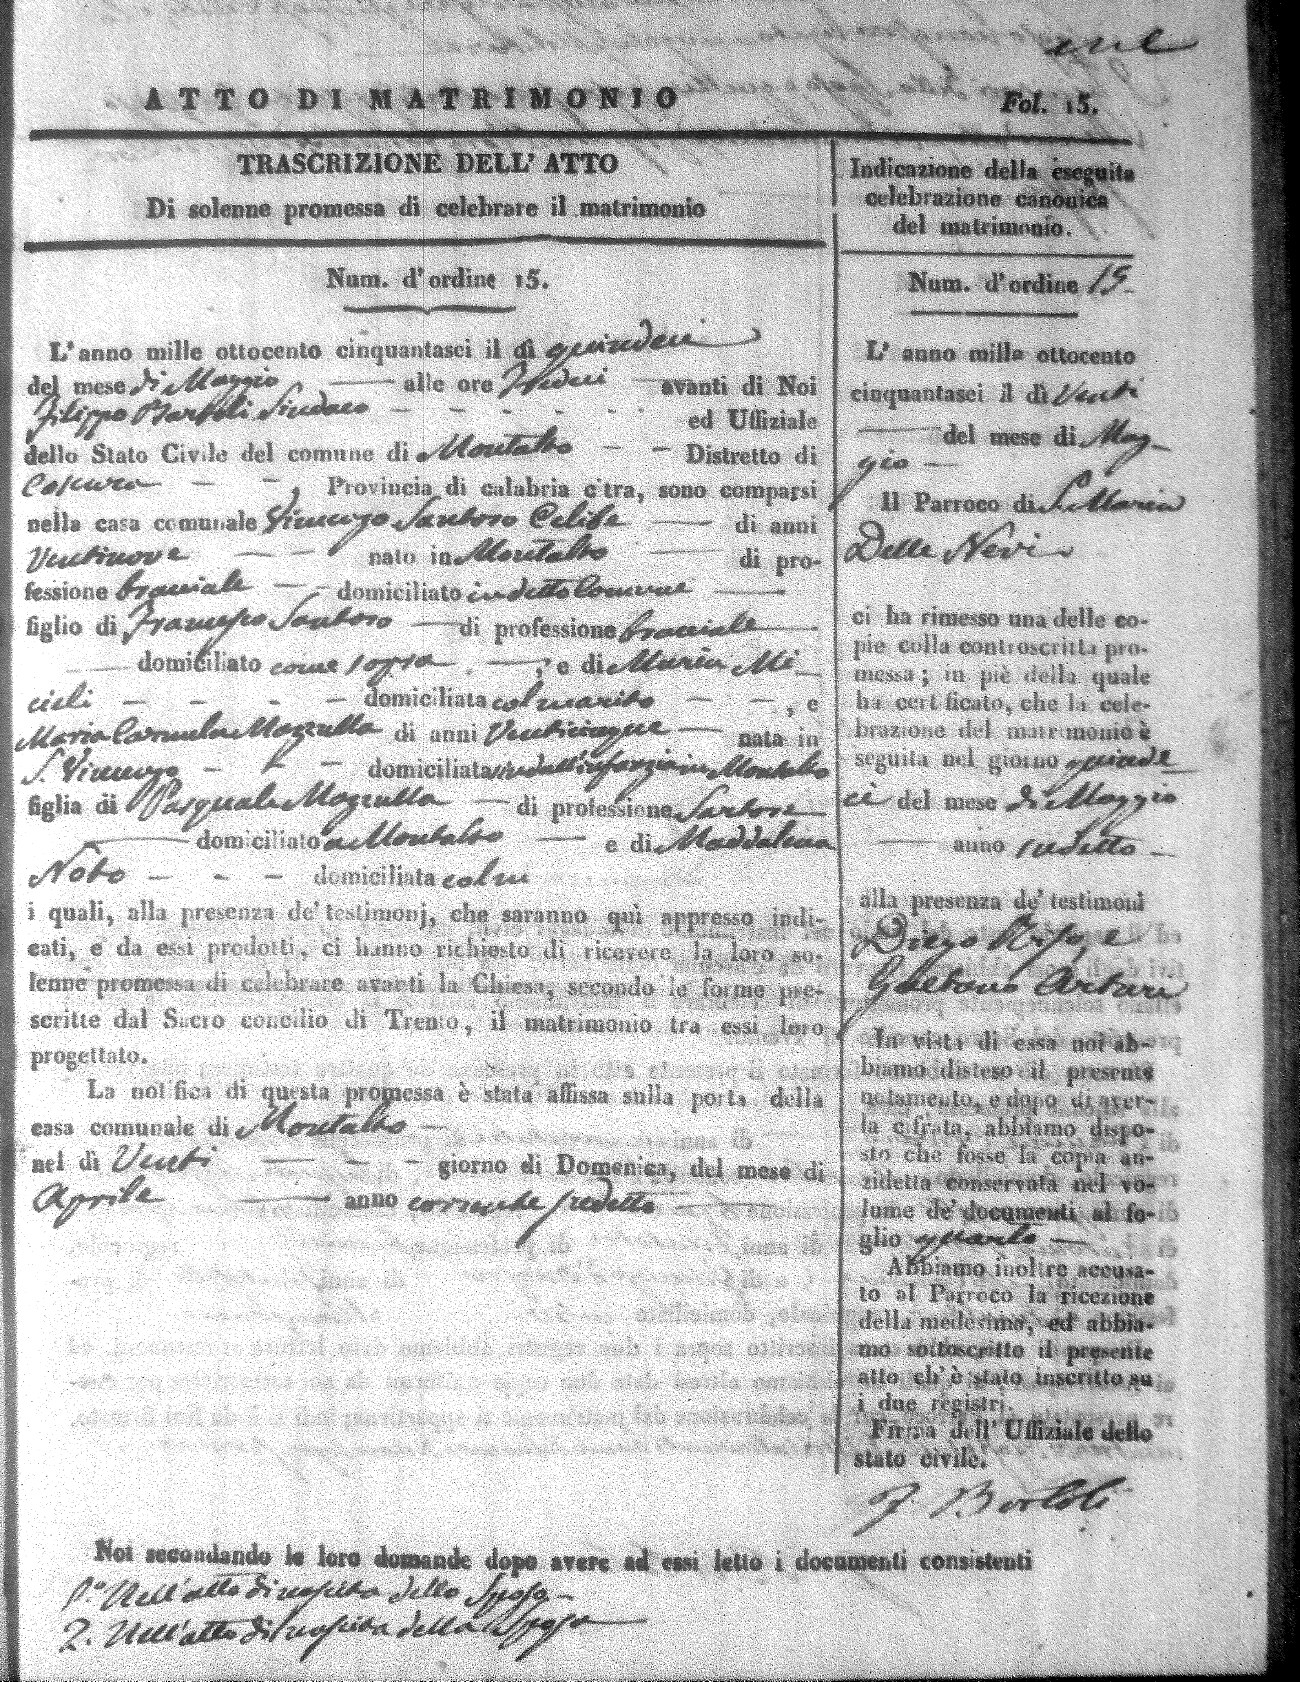 ATTO DI MATRIMONIO
Fol. 15.
TRASCRIZIONE DELL' ATTO
Di solenne promessa di celebrare il matrimonio
Num. d'ordine 15.
L'anno mille ottocento cinquantasei il dì quindeci
del mese di Maggio alle ore Tredeci avanti di Noi
Filippo Bartoli Sindaco ed Uffiziale
dello Stato Civile del comune di Montalto Distretto di
Cosenza, Provincia di calabria citra, sono comparsi
nella casa comunale Vincenzo Santoro Celibe di anni
Ventinove nato in Montalto di pro-
fessione bracciale domiciliato in detto Comune
figlio di Francesco Santoro di professione bracciale
domiciliato come sopra, e di Maria Mi
cieli domiciliata col marito, e
Maria Carmela Mazzulla di anni Venticinque nata in
S. Vincenzo domiciliata sin dall'infanzia in Montalto
figlia di Pasquale Mazzulla di professione Sartore
domiciliato a Montalto e di Maddalena
Noto domiciliata col
i quali, alla presenza de' testimonj, che saranno quì appresso indi-
cati, e da essi prodotti, ci hanno richiesto di ricevere la loro so-
lenne promessa di celebrare avanti la Chiesa, secondo le forme pre-
scritte dal Sacro concilio di Trento, il matrimonio tra essi loro
progettato.
La notifica di questa promessa è stata affissa sulla porta della
casa comunale di Montalto
nel dì Venti giorno di Domenica, del mese di
Aprile anno corrente predetto
Indicazione della eseguita
celebrazione canonica
del matrimonio.
Num. d'ordine 15
L' anno mille ottocento
cinquantasei il dì Venti
del mese di Mag-
gio
Il Parroco di S. Maria
Delle Nevi
ci ha rimesso una delle co-
pie colla controscritta pro-
messa; in piè della quale
ha certificato, che la cele-
brazione del matrimonio è
seguita nel giorno quinde
ci del mese di Maggio
anno sudetto
alla presenza de' testimoni
Diego Riso, e
Gaetano Arturi
In vista di essa noi ab-
biamo disteso il presente
notamento, e dopo di aver-
la cifrata, abbiamo dispo-
sto che fosse la copia an-
zidetta conservata nel vo-
lume de' documenti al fo-
glio quarto
Abbiamo inoltre accusa-
to al Parroco la ricezione
della medesima, ed abbia-
mo sottoscritto il presente
atto ch' è stato inscritto su
i due registri.
Firma dell' Uffiziale dello
stato civile.
F. Bartoli
Noi secondando le loro domande dopo avere ad essi letto i documenti consistenti
1.° Nell'atto di nascita dello Sposo
2. Nell'atto di nascita della Sposa